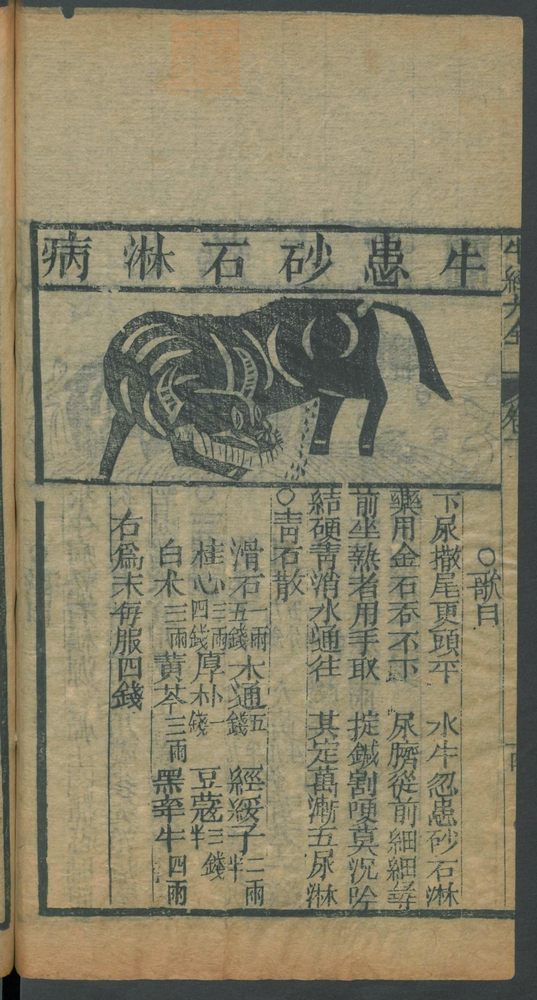 牛患砂石淋病
牛經大全
○歌曰
下尿撒尾更頭平　水牛忽患砂石淋
藥用金石吞不下　尿臍從前細細尋
前坐熱者用手取　掟鍼割哽莫沉吟
結硬青消水通往　其定萬漸五尿淋
○青石散
滑石一兩五錢　木通五錢　經綏子二兩半
桂心三兩四錢　厚朴一錢　豆蔻三錢半
白术三兩　黄芩三兩　黑牽牛四兩
右爲末每服四錢